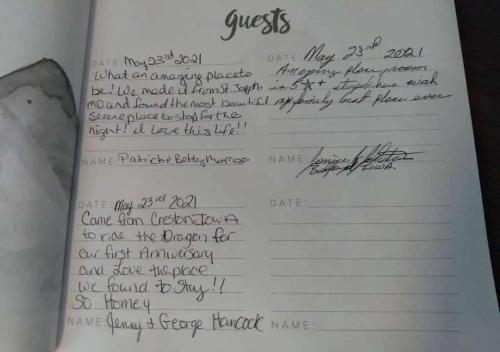 guests
DATE: May 23rd 2021
What an amazing place to
be! We made it from St Joseph
MO and found the most beautiful
serene place to stop for the
night! I love this life!!
NAME: Patrick & Betty
DATE: May 23rd 2021
Amazing place room
is 5 ☆ +
my family best place ever
NAME:
IOWA.
DATE: May 23rd 2021
Came from Creston, IOWA
to ride the Dragon for
our first Anniversary
and Love the place
we found to stay!!
So Homey
NAME: Jenny & George Hancock
DATE:
NAME: